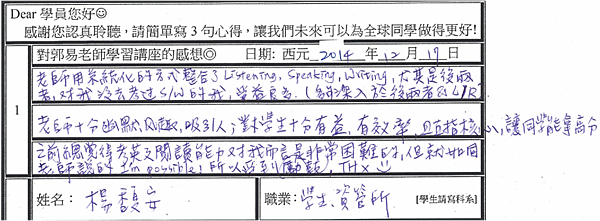 Dear 學員您好☺
感謝您認真聆聽，請簡單寫3句心得，讓我們未來可以為全球同學做得更好!
對郭易老師學習講座的感想◎ 日期: 西元 2014 年 12 月 17 日
1
老師用系統化的方式整合了 Listening, Speaking, Writing, 尤其是後兩
者, 對我沒去考過S/W的我, 受益良多. (多深入於後兩者的L/R)
老師十分幽默風趣, 吸引人; 對學生十分有益, 有效率, 且直指核心, 讓同學能拿高分
之前總覺得考英文閱讀能力對我而言是非常困難的, 但就如同
老師說的 I'm possible! 所以受到鼓勵, THX ☺
姓名: 楊馥安 職業: 學生, 資管所 [學生請寫科系]